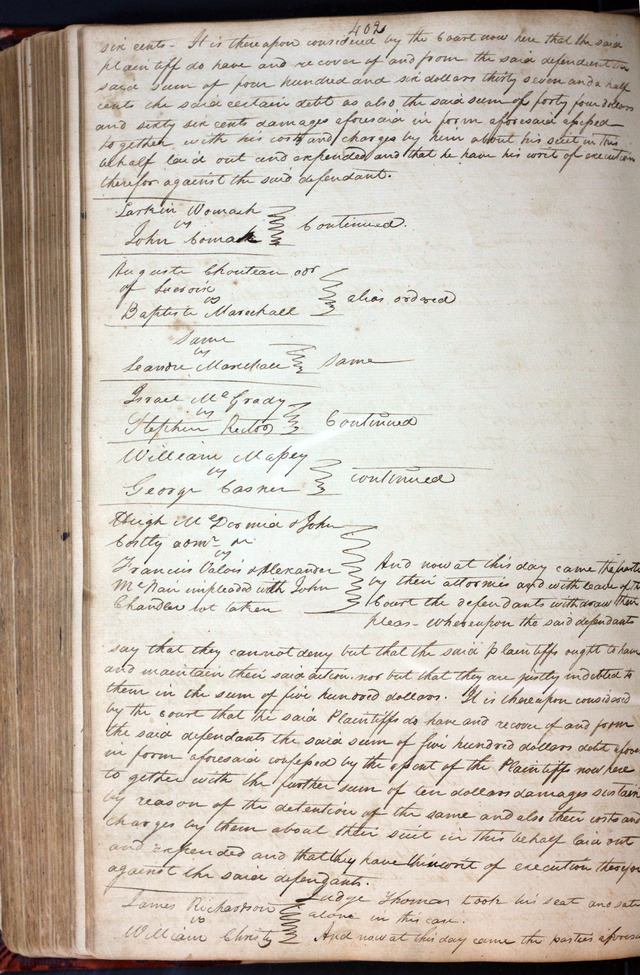 402
six cents - It is thereupon considered by the Court now here that the said
plaintiff do have and recover of and from the said defendent in
said sum of four hundred and six dollars thirty seven and a half
cents the said certain debt as also the said sum of forty four dollars
and sixty six cents damages aforesaid in form aforesaid assessed
together with his costs and charges by him about his suit in this
behalf laid out and expended and that he have his writ of execution
therefor against the said defendant.
Larkin Womack
vs
John Comack
Continued.
Auguste Chouteau
of
vs
Baptiste Mareschall
alias ordered
Same
vs
Leandre Mareschall
Same
Israel McGrady
vs
Stephen Rector
Continued
William Massey
vs
George Casner
continued
Hugh McDormid & John
Costly admr
vs
Francis Valois & Alexander
McNair impleaded with John
Chandler not taken
And now at this day came the parties
by their attornies and with leave of the
Court the defendants withdraw their
pleas - Whereupon the said defendants
say that they cannot deny but that the said Plaintiffs ought to have
and maintain their said action, nor but that they are justly indebted to
them in the sum of five hundred dollars. It is thereupon considered
by the court that he said Plaintiffs do have and recover of and form
the said defendants the said sum of five hundred dollars debt afores
in form aforesaid confessed by the assent of the Plaintiffs now here
to gether with the further sum of ten dollars damages sustain
by reason of the detention of the same and also their costs and
charges by them about their suit in this behalf laid out
and expended and that they have their writ of execution
against the said defendants.
James Richardson
vs
William Christy
Judge Thomas took his seat and sat
alone in this case.
And now at this day came the parties aforesa